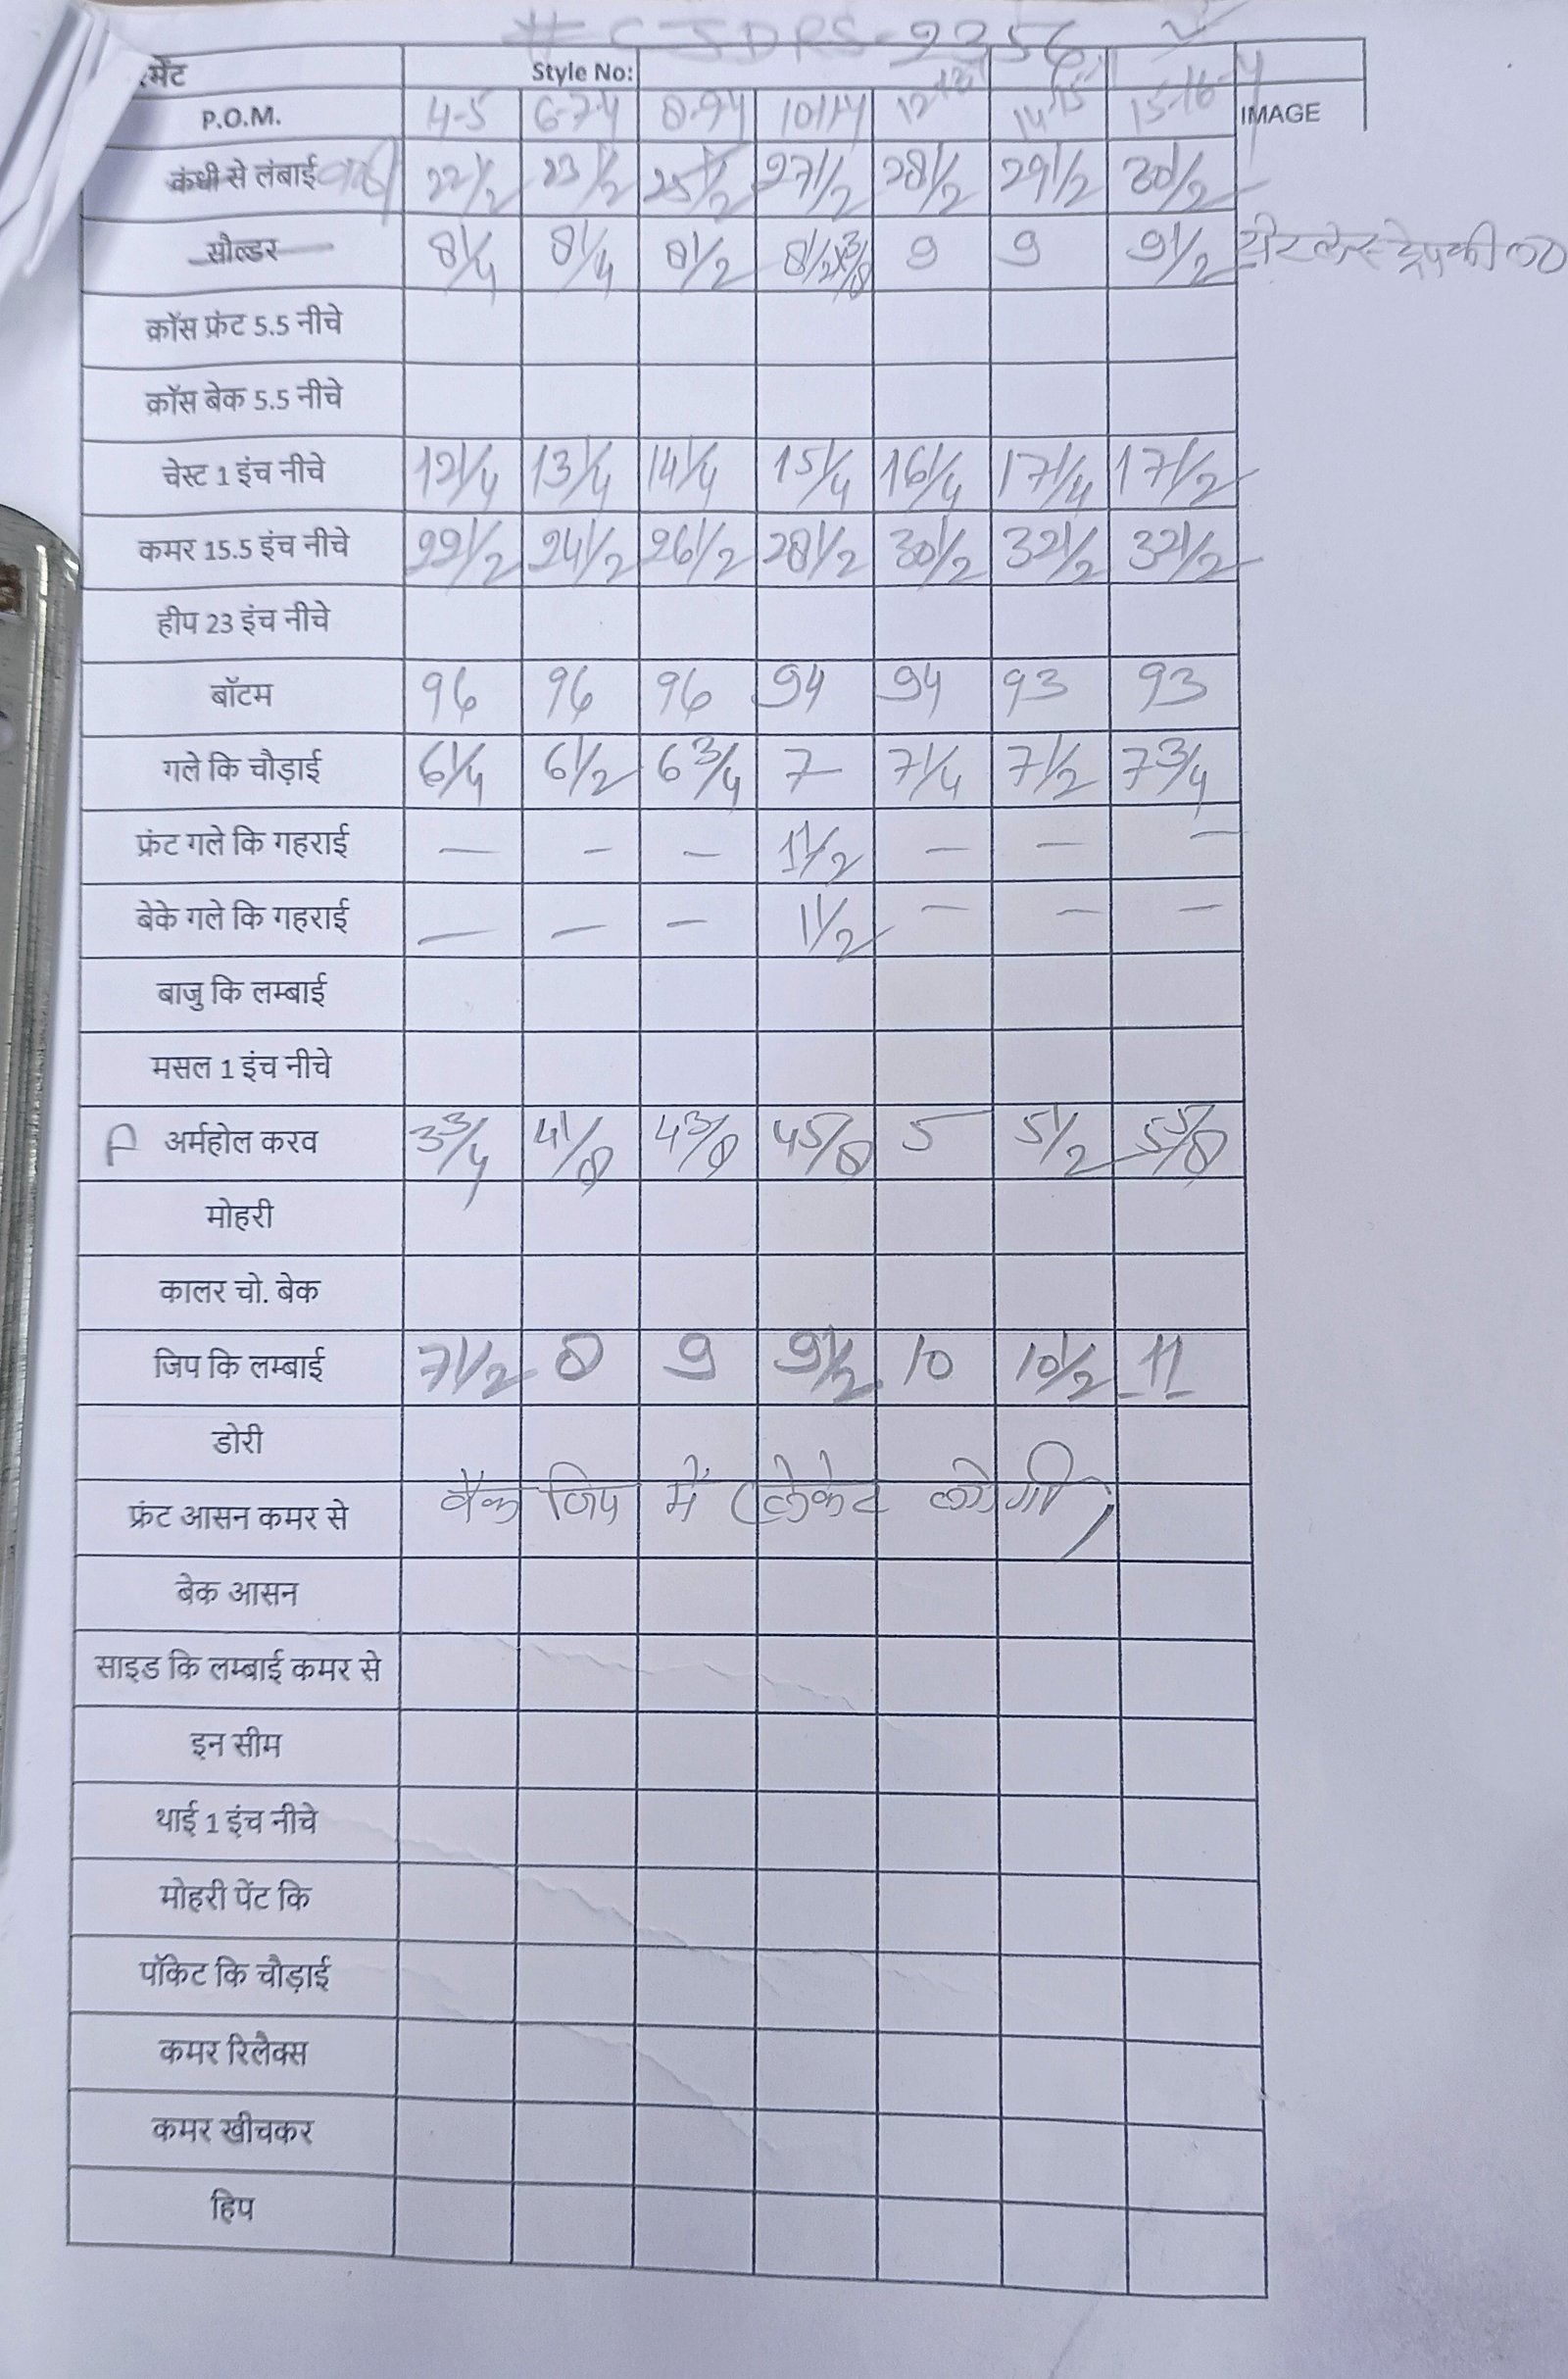 # CJDRS-2256
र्मेंट Style No:
P.O.M. 4-5 6-7-Y 8-9Y 10-11-Y 12-13 14-15 15-16-Y IMAGE
कंधी से लंबाई 22 1/2 23 1/2 25 1/2 27 1/2 28 1/2 29 1/2 30 1/2
सौल्डर 8 1/4 8 1/4 8 1/2 8 1/2 x 3/8 9 9 9 1/2
क्रॉस फ्रंट 5.5 नीचे
क्रॉस बेक 5.5 नीचे
चेस्ट 1 इंच नीचे 12 1/4 13 1/4 14 1/4 15 1/4 16 1/4 17 1/4 17 1/2
कमर 15.5 इंच नीचे 22 1/2 24 1/2 26 1/2 28 1/2 30 1/2 32 1/2 32 1/2
हीप 23 इंच नीचे
बॉटम 96 96 96 94 94 93 93
गले कि चौड़ाई 6 1/4 6 1/2 6 3/4 7 7 1/4 7 1/2 7 3/4
फ्रंट गले कि गहराई — — — 1 1/2 — — —
बेके गले कि गहराई — — — 1 1/2 — — —
बाजु कि लम्बाई
मसल 1 इंच नीचे
A अर्महोल करव 3 3/4 4 1/8 4 3/8 4 5/8 5 5 1/2 5 5/8
मोहरी
कालर चो. बेक
जिप कि लम्बाई 7 1/2 8 9 9 1/2 10 10 1/2 11
डोरी
बैक जिप में (लेकेट लगेगी)
फ्रंट आसन कमर से
बेक आसन
साइड कि लम्बाई कमर से
इन सीम
थाई 1 इंच नीचे
मोहरी पेंट कि
पॉकेट कि चौड़ाई
कमर रिलैक्स
कमर खीचकर
हिप